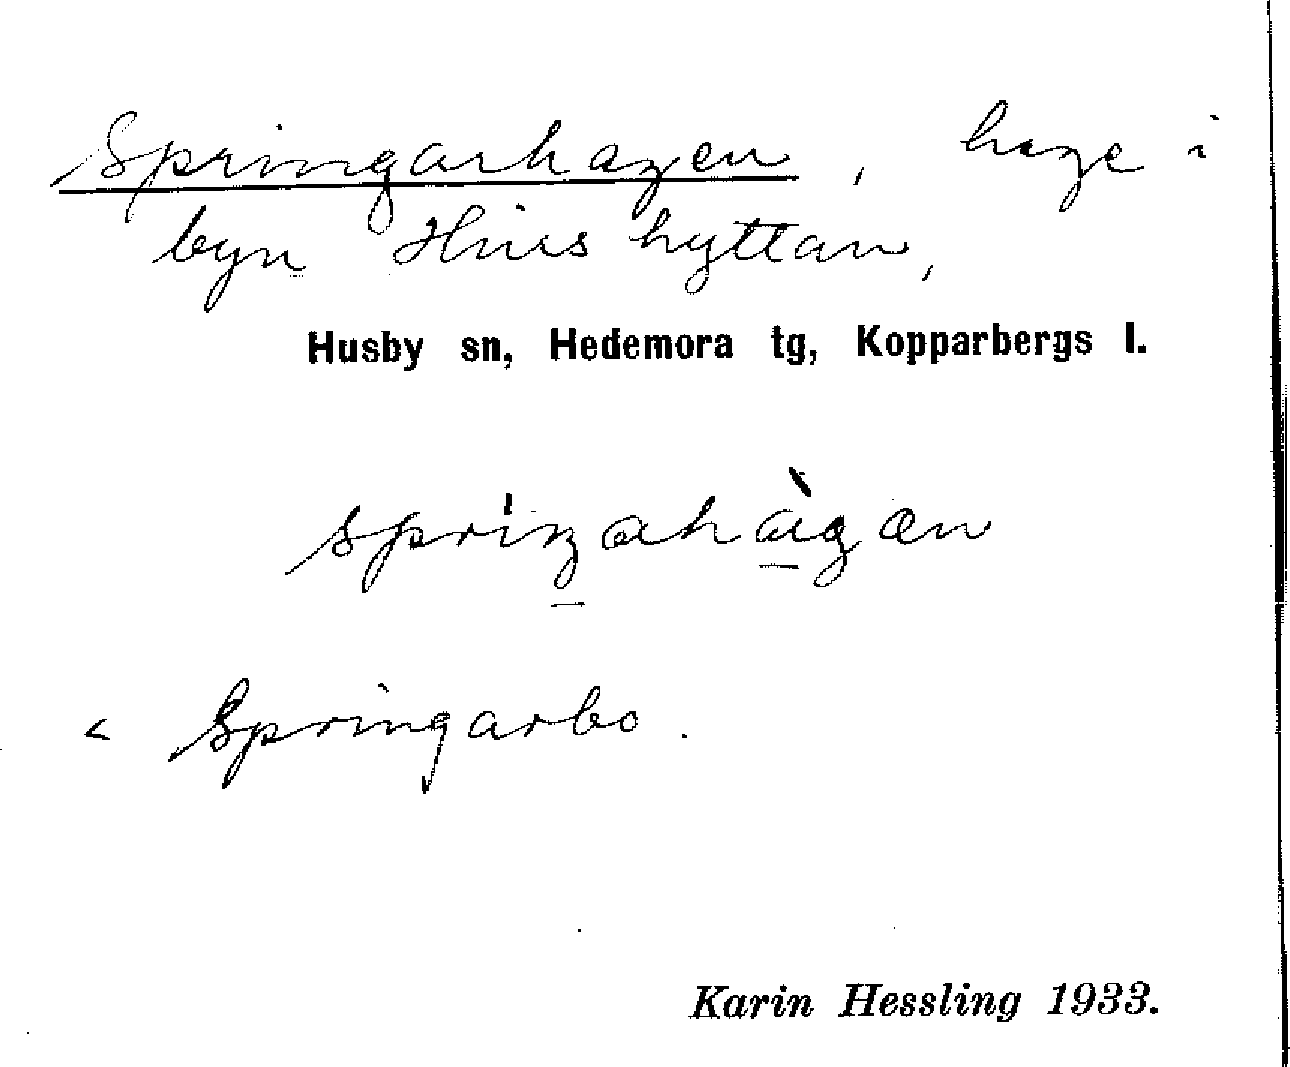 Springarhagen, hage i
byn Hinshyttan,
Husby sn, Hedemora tg, Kopparbergs l.
< Springarbo.
Karin Hessling 1933.